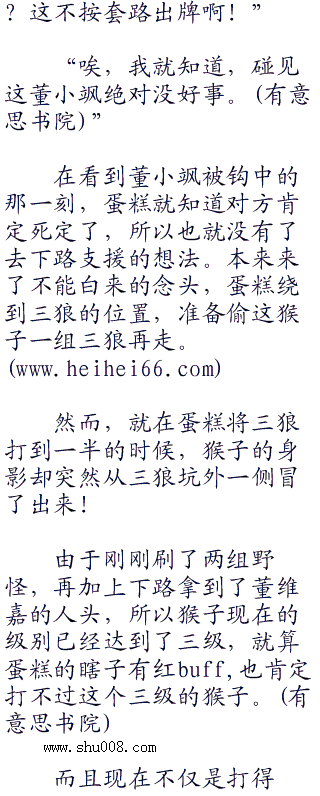 ？这不按套路出牌啊！”
“唉，我就知道，碰见
这董小飒绝对没好事。(有意
思书院)”
在看到董小飒被钩中的
那一刻，蛋糕就知道对方肯
定死定了，所以也就没有了
去下路支援的想法。本来来
了不能白来的念头，蛋糕绕
到三狼的位置，准备偷这猴
子一组三狼再走。
(www.heihei66.com)
然而，就在蛋糕将三狼
打到一半的时候，猴子的身
影却突然从三狼坑外一侧冒
了出来！
由于刚刚刷了两组野
怪，再加上下路拿到了董维
嘉的人头，所以猴子现在的
级别已经达到了三级，就算
蛋糕的瞎子有红buff,也肯定
打不过这个三级的猴子。(有
意思书院)
www.shu008.com
而且现在不仅是打得